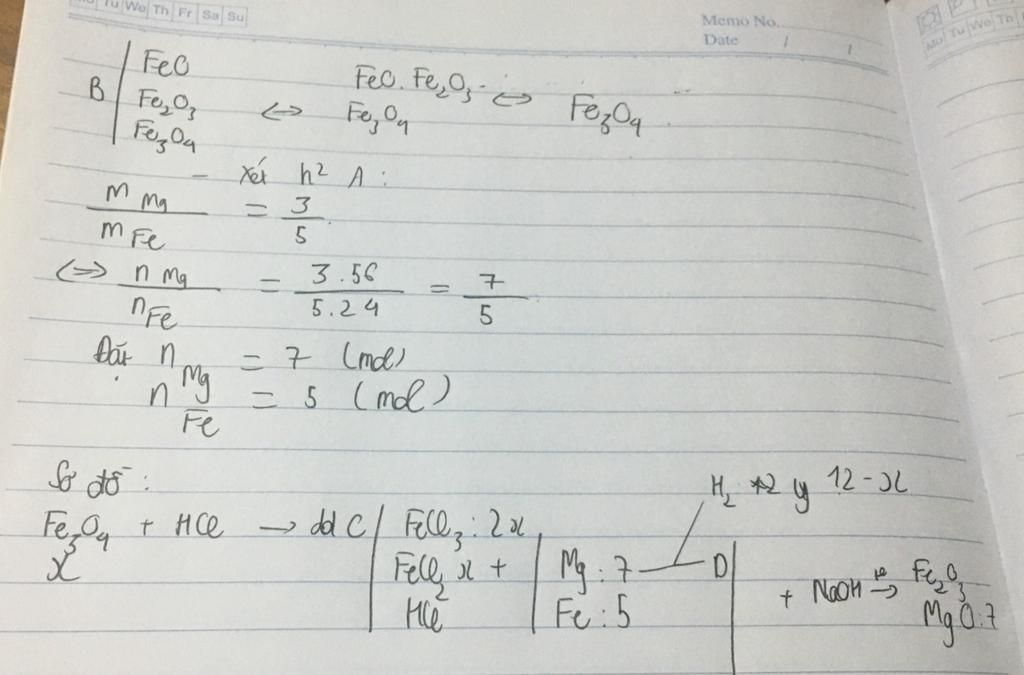 Tu We Th Fr Sa Su
Memo No.
Date / /
Mo Tu We Th
B | FeO
Fe₂O₃
Fe₃O₄
<=> FeO.Fe₂O₃
Fe₃O₄
<=> Fe₃O₄
- Xét h² A:
m Mg / m Fe = 3/5
<=> n Mg / n Fe = 3.56 / 5.24 = 7/5
Đặt n Mg = 7 (mol)
n Fe = 5 (mol)
Sơ đồ:
H₂ y 12-x
Fe₃O₄ + HCl → dd C | FeCl₃ : 2x
x
FeCl₂ x +
HCl
Mg : 7
Fe : 5
D
+ NaOH → Fe₂O₃
MgO : 7